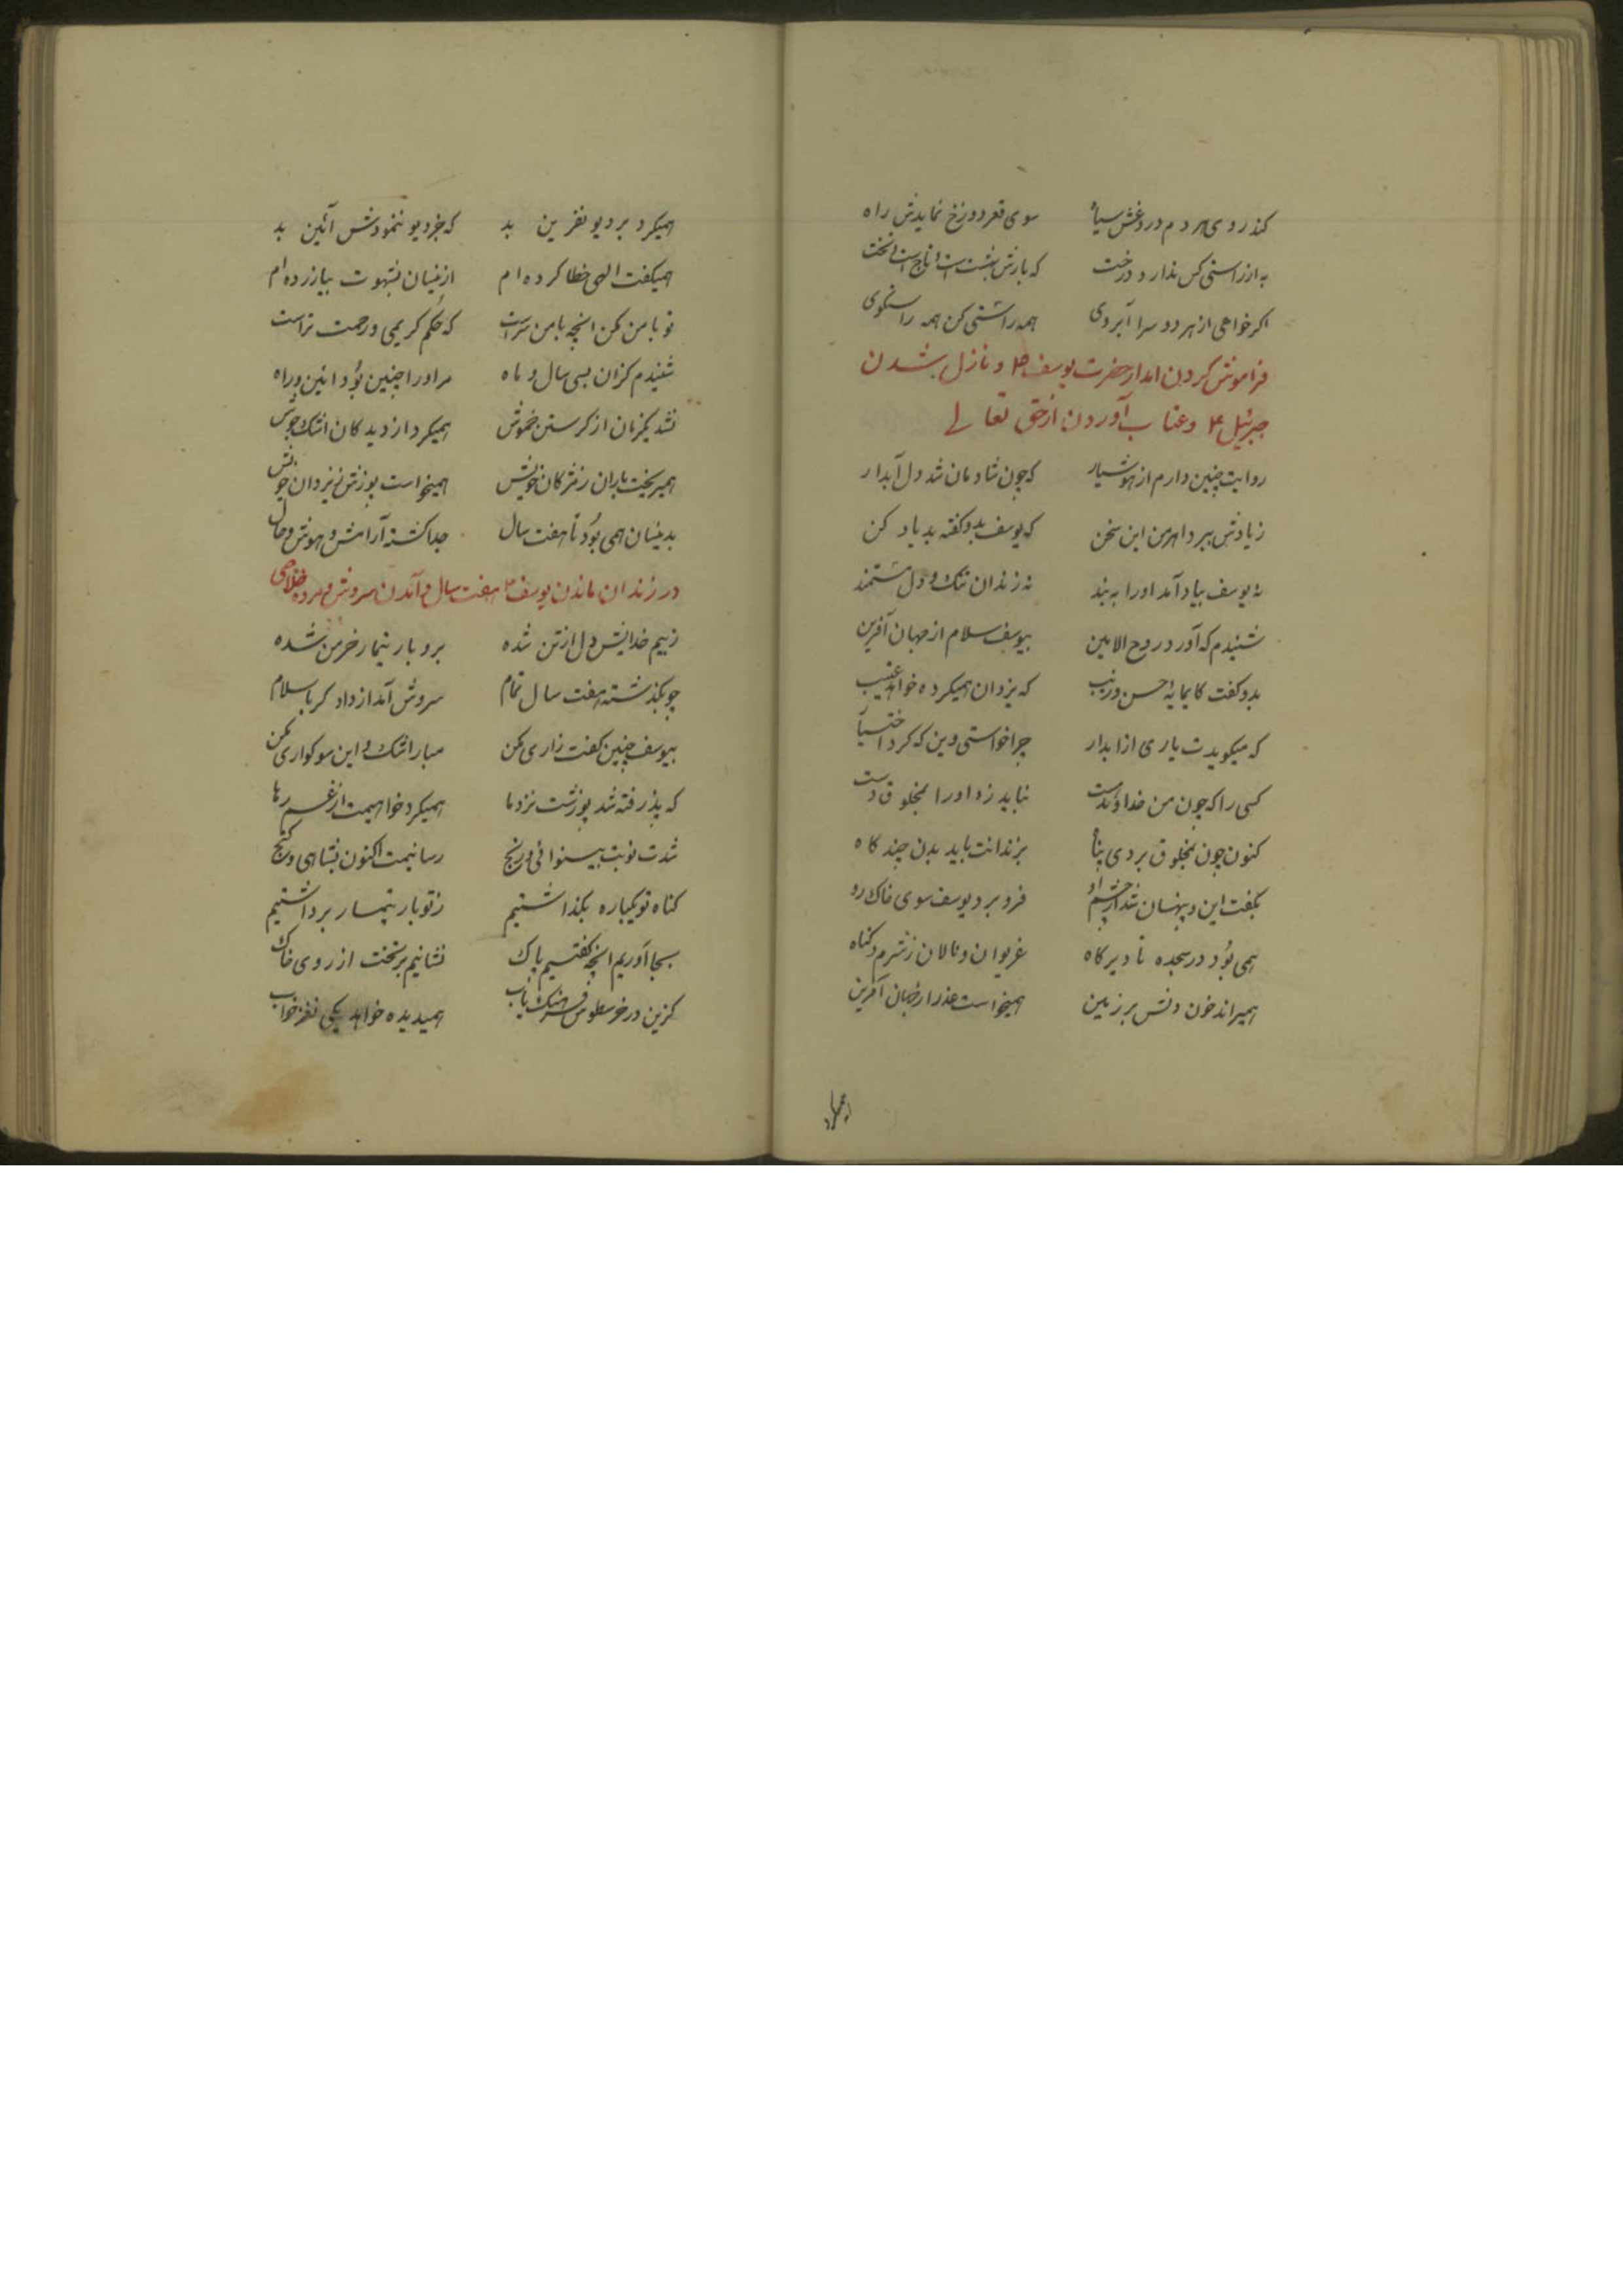 کند روی مردم دروغش سیاه سوی قعر دوزخ نمایدش راه
به از راستی کس ندارد درخت که بارش بهشت است و تاج است و تخت
اکر خواهی از هر دو سرا آبروی همه راستی کن همه راستکوی
فراموش کردن ابدار حضرت یوسف ۴ و نازل شدن
جبرئیل ۴ و عتاب آوردن از حق تعالی
روایت چنین دارم از هوشیار که چون شادمان شد دل آبدار
زیادش ببرد اهرمن این سخن که یوسف بدو کفته بد یاد کن
نه یوسف بیاد آمد او را نه بند نه زندان تنک و دل مستمند
شنیدم که آورد روح الامین بیوسف سلام از جهان آفرین
بدو کفت کای مایهٔ حسن و زیب که یزدان همیکرده خواهد عتیب
که میکویدت یاری از ابدار چرا خواستی وین که کرد اختیار
کسی را که چون من خداوند است نباید زد او را بمخلوق دست
کنون چون بمخلوق بردی پناه بزندانت باید بدن چند کاه
بکفت این و پنهان شد از چشم او فرو برد یوسف سوی خاک رو
همی بود در سجده تا دیرکاه غریوان و نالان ز شرم و کناه
همیراند خون دلش بر زمین همیخواست عذر از جهان آفرین
همیکرد
همیکرد بر دیو نفرین بد که جز دیو ننمودش آئین بد
همیکفت الهی خطا کرده ام ازینسان بشهوت بیازرده ام
تو با من مکن انچه با من سزاست که حکم کریمی و رحمت تراست
شنیدم کزان بسی سال و ماه مر او را چنین بود آئین و راه
نشد یکزمان از کرستن خموش همیکرد از دیدکان اشک جوش
همیریخت باران ز مژکان خویش همیخواست پوزش ز یزدان خویش
بدینسان همی بود تا هفت سال جدا کشته آرامش و هوش و حال
در زندان ماندن یوسف ۴ هفت سال و آمدن سروش و مژده خلاصی
ز بیم خدایش دل از تن شده برو بار تیمار خرمن شده
چو بکذشته هفت سال تمام سروش آمد از دادکر با سلام
بیوسف چنین کفت زاری مکن مبار اشک و این سوکواری مکن
که پذرفته شد پوزشت نزد ما همیکرد خواهیمت از غم رها
شدت نوبت بینوائی و رنج رسانیمت اکنون بشاهی و کنج
کناه تو یکباره بکذاشتیم ز تو بار تیمار برداشتیم
بجا آوریم انچه کفتیم پاک نشانیم بر تخت از روی خاک
کزین در خسرو فرهنک یاب همیدیده خواهد یکی نغز خواب